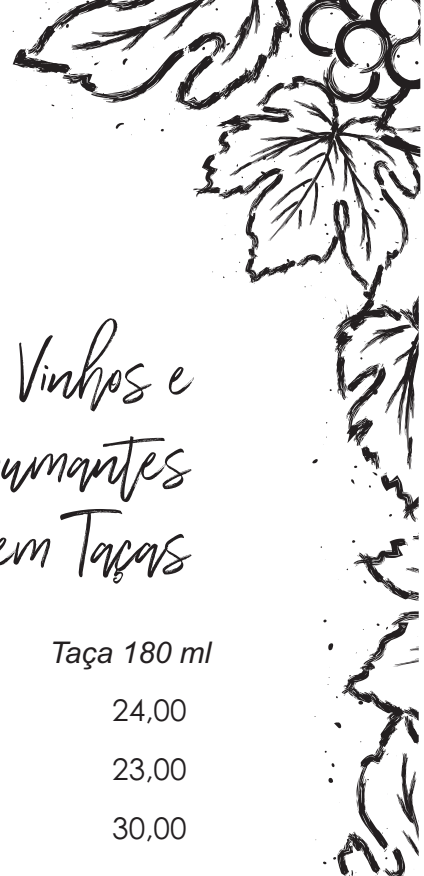 Vinhos e
umantes
em Taças
Taça 180 ml
24,00
23,00
30,00